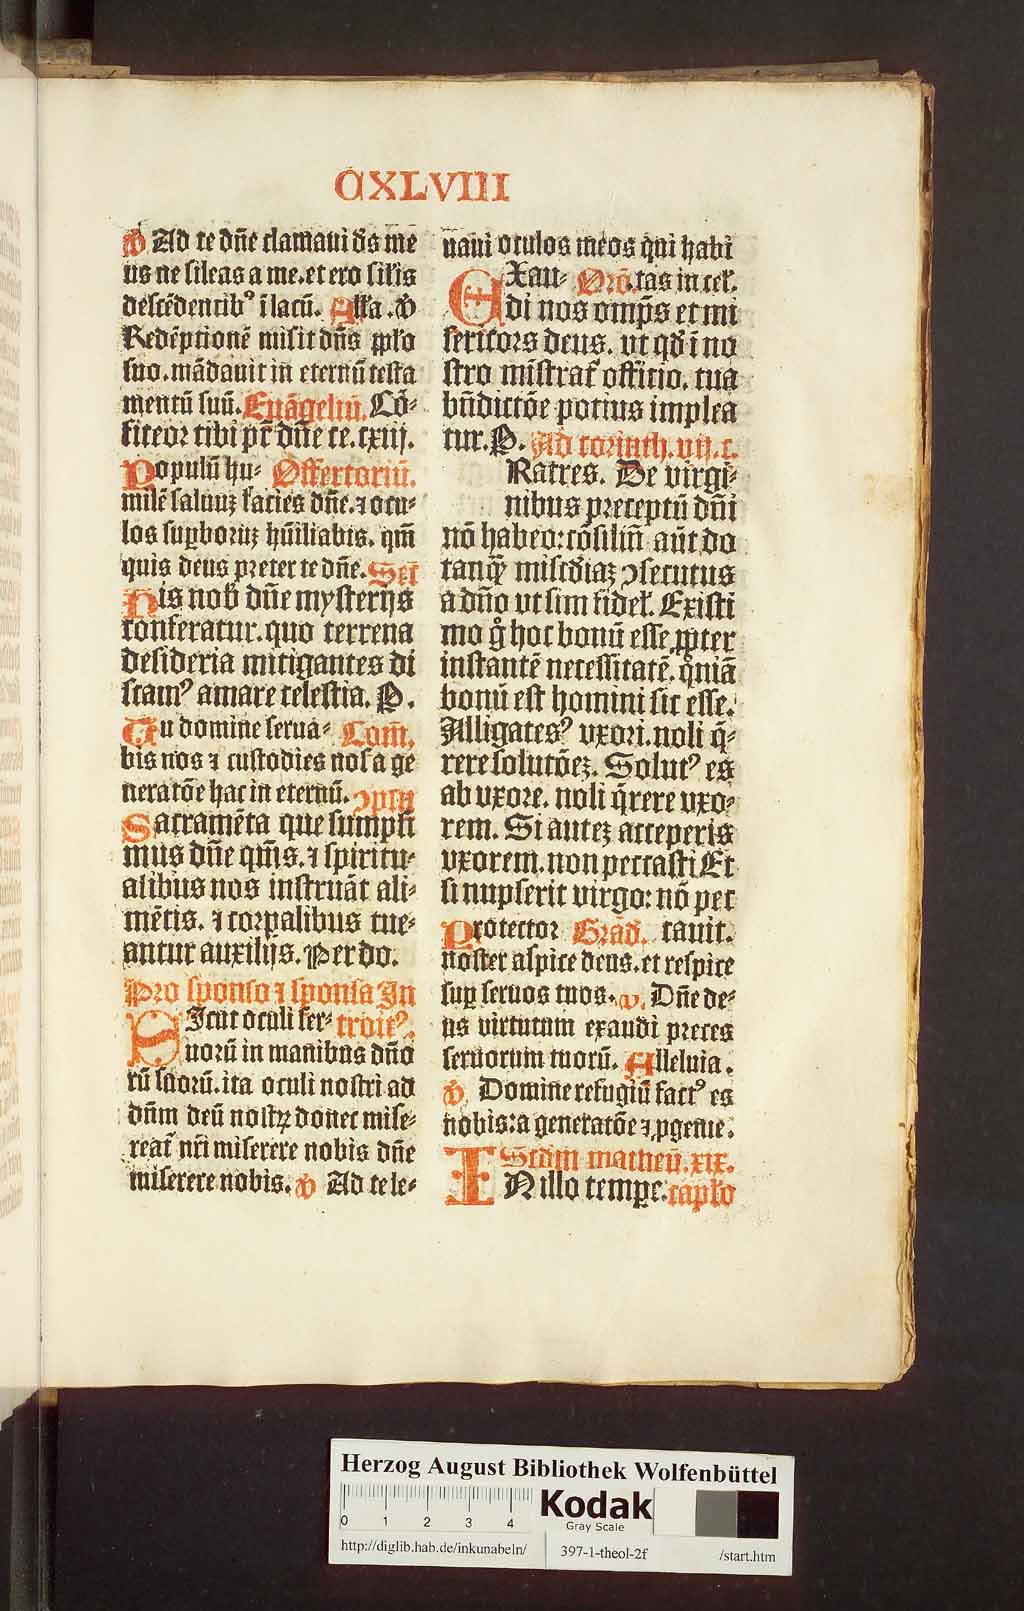 CXLVIII
℣ Ad te dñe clamaui ds̄ me
us ne sileas a me. et ero siĺis
descēdentibꝰ ī lacū. Alĺa. ℣
Redēptionē misit dñs ꝑplo
suo. mādauit in eternū testa
mentū suū. Euāgeliū. Cō-
fiteor tibi pr̄ dñe te. cxiij.
Populū hu- Offertoriū.
milē saluuꝫ facies dñe. ⁊ ocu-
los suꝑboruꝫ hūiliabis. qm̄
quis deus preter te dñe. Sec̄
His nob̄ dñe mysterijs
conferatur. quo terrena
desideria mitigantes di
scamꝰ amare celestia. P.
Tu domine serua- Com̄.
bis nos ⁊ custodies nos a ge
neratōe hac in eternū. ↄplū
Sacramēta que sumpsi
mus dñe qm̄s. ⁊ spiritu-
alibus nos instruāt ali-
mētis. ⁊ corꝑalibus tue-
antur auxilijs. Per do.
Pro sponso ⁊ sponsa In
Sicut oculi ser- troitꝰ.
uorū in manibus dño
rū suorū. ita oculi nostri ad
dñm deū nostrꝝ donec mise-
reat̄ nr̄i miserere nobis dñe
miserere nobis. ℣ Ad te le-
uaui oculos meos qui habi
EXau- Orō. tas in cel̄.
di nos omp̄s et mi
sericors deus. vt qd̄ ī no
stro mīstrat̄ officio. tua
bn̄dictōe potius implea
tur. P. Ad corinth. vij. c.
Ratres. De virgi-
nibus preceptū dñi
nō habeo: cōsiliū aūt do
tanqꝫ misc̄diaꝫ ↄsecutus
a dño vt sim fidel̄. Existi
mo gͦ hoc bonū esse ꝓpter
instantē necessitatē. qm̄iā
bonū est homini sic esse.
Alligatesꝰ vxori. noli q̄-
rere solutōeꝫ. Solutꝰ es
ab vxore. noli q̄rere vxo-
rem. Si auteꝫ acceperis
vxorem. non peccasti Et
si nupserit virgo: nō pec
Protector Grad̄. cauit.
noster aspice deus. et respice
suꝑ seruos tuos. v. Dñe de-
us virtutum exaudi preces
seruorum tuorū. Alleluia.
℣ Domine refugiū factꝰ es
nobis: a generatōe ⁊ ꝓgenie.
Scdm matheū. xix.
IN illo tempe. caplo
Herzog August Bibliothek Wolfenbüttel
0 1 2 3 4
Kodak
Gray Scale
http://diglib.hab.de/inkunabeln/ 397-1-theol-2f /start.htm